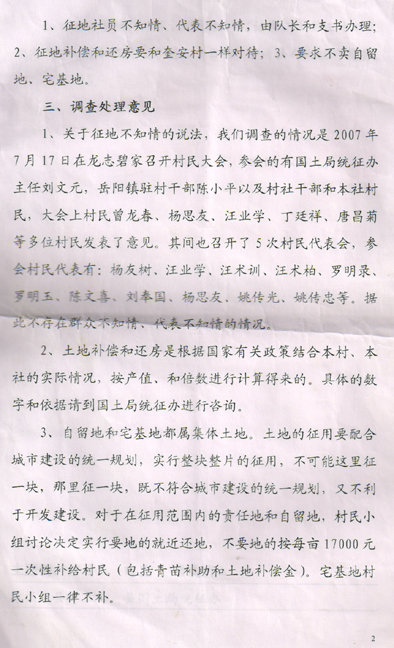 1、征地社员不知情、代表不知情，由队长和支书办理；
2、征地补偿和还房要和金安村一样对待；3、要求不卖自留
地、宅基地。
三、调查处理意见
1、关于征地不知情的说法，我们调查的情况是 2007 年
7 月 17 日在龙志碧家召开村民大会，参会的有国土局统征办
主任刘文元，岳阳镇驻村干部陈小平以及村社干部和本社村
民，大会上村民曾龙春、杨思友、汪业学、丁廷祥、唐昌菊
等多位村民发表了意见。其间也召开了 5 次村民代表会，参
会村民代表有：杨友树、汪业学、汪术训、汪术柏、罗明录、
罗明玉、陈文喜、刘奉国、杨思友、姚传光、姚传忠等。据
此不存在群众不知情、代表不知情的情况。
2、土地补偿和还房是根据国家有关政策结合本村、本
社的实际情况，按产值、和倍数进行计算得来的。具体的数
字和依据请到国土局统征办进行咨询。
3、自留地和宅基地都属集体土地。土地的征用要配合
城市建设的统一规划，实行整块整片的征用，不可能这里征
一块，那里征一块，既不符合城市建设的统一规划，又不利
于开发建设。对于在征用范围内的责任地和自留地，村民小
组讨论决定实行要地的就近还地，不要地的按每亩 17000 元
一次性补给村民（包括青苗补助和土地补偿金）。宅基地村
民小组一律不补。
2